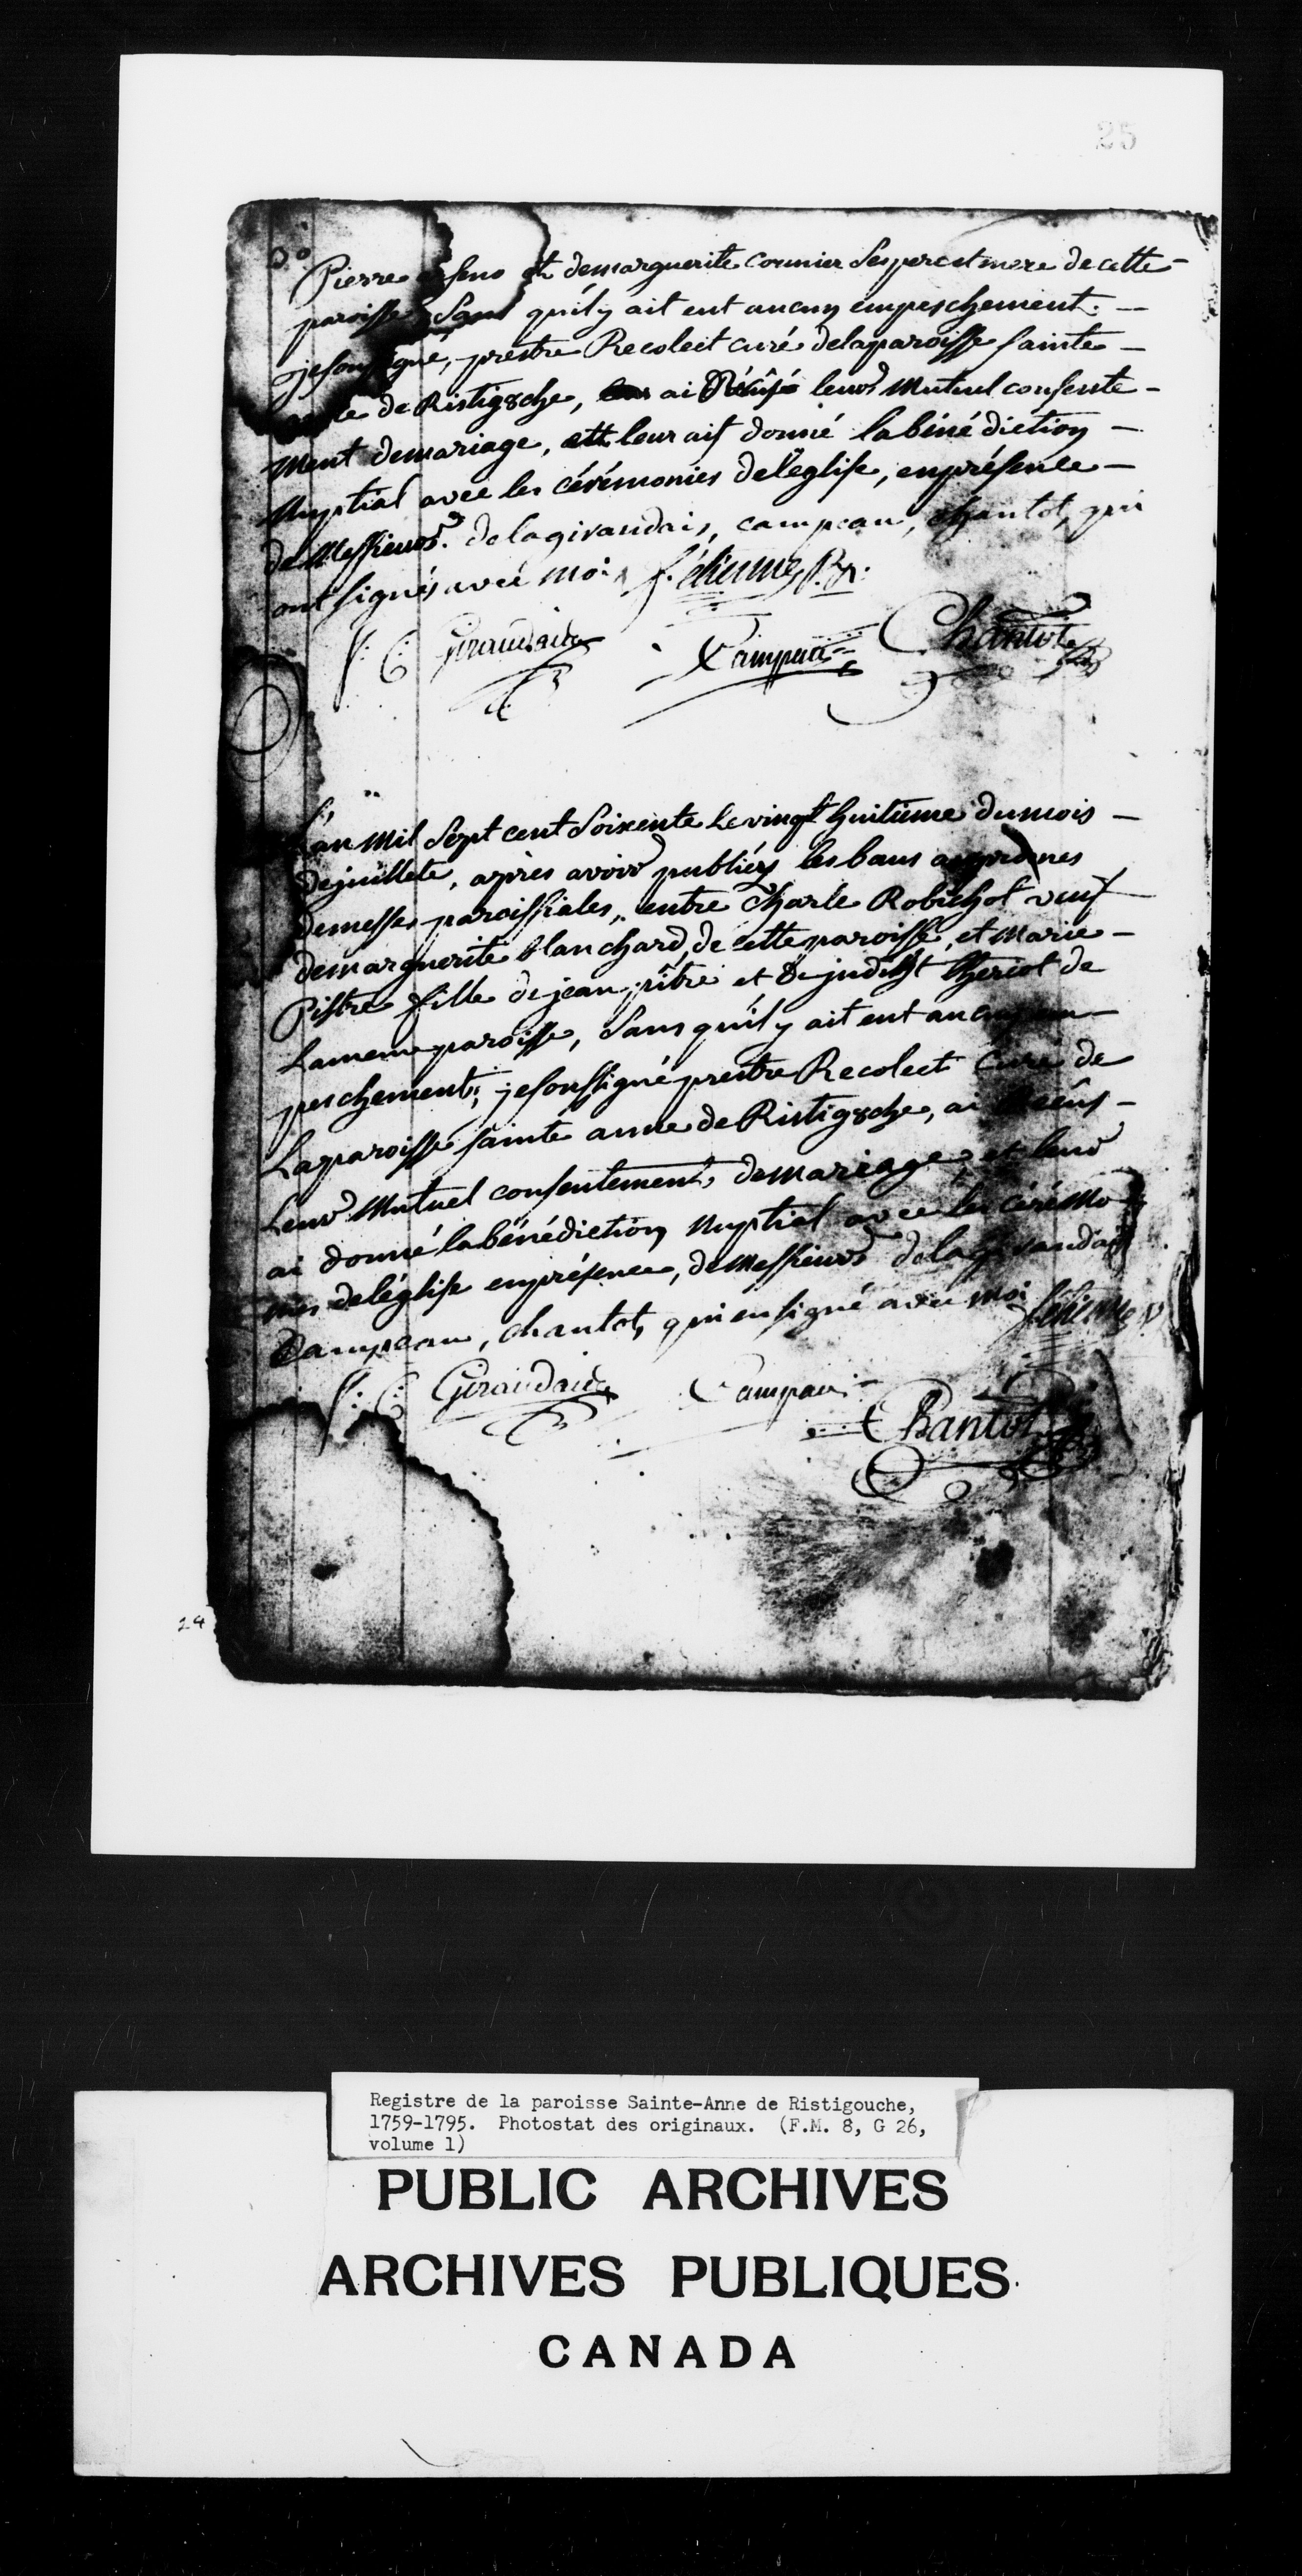 25
Pierre et demarguerite cormier Ses pere et mere de cette
paroisse, Sans quil y ait eut aucun empeschement.
je sousigné, prestre Recolect curé delaparoisse sainte
de Ristig8che, ai leurs Mutuel consente-
ment demariage, et leur ait donné labénédiction
Nuptial avec les cérémonies del'église, enprésence
de Messieurs. delagiraudais, campeau, chantot, qui
ont signés avec moi f. étienne
Giraudais Campeau Chantot
L'an Mil Sept cent Soixente Le vingt huitième dumois
dejuillete, après avoir publiés les bans
demesses paroissiales, entre Charle Robichot veuf
demarguerite blanchard, de cette paroisse, et Marie
Pistre fille de jean pitre et De judiht theriot de
Lameme paroisse, Sans quil y ait eut
peschement; je soussigné prestre Recolect Curé de
Laparoisse sainte anne de Ristig8che, ai
Leur Mutuel consentement, demariage, et leur
ai donné labénédiction Nuptial avec les cérémo
nies deléglise enprésence, de Messieurs delagiraudais
Campeau, chantot, qui ensigné avec moi f. étienne
Giraudais Campeau
Chantot
24
Registre de la paroisse Sainte-Anne de Ristigouche,
1759-1795. Photostat des originaux. (F.M. 8, G 26,
volume 1)
PUBLIC ARCHIVES
ARCHIVES PUBLIQUES
CANADA